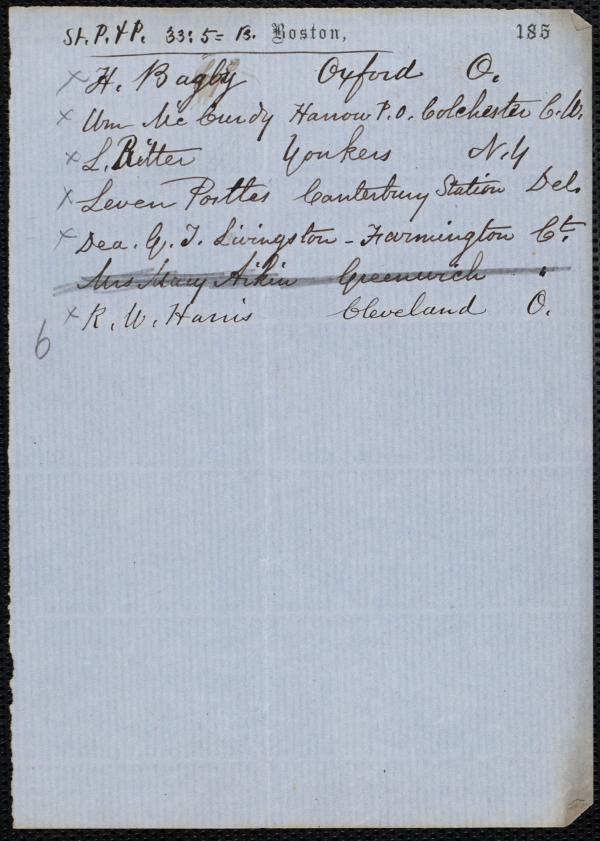 St. P. & P. 33: 5 = B. Boston, 185
x H. Bagby Oxford O.
x Wm McCurdy Harrow P.O. Colchester C.W.
x L. Ritter Yonkers N.Y
x Leven Posttes Canterbury Station Del.
x Dea. G. T. Livingston - Farmington Ct.
Mrs Mary Aikin Greenwich "
x R. W. Harris Cleveland O.
6